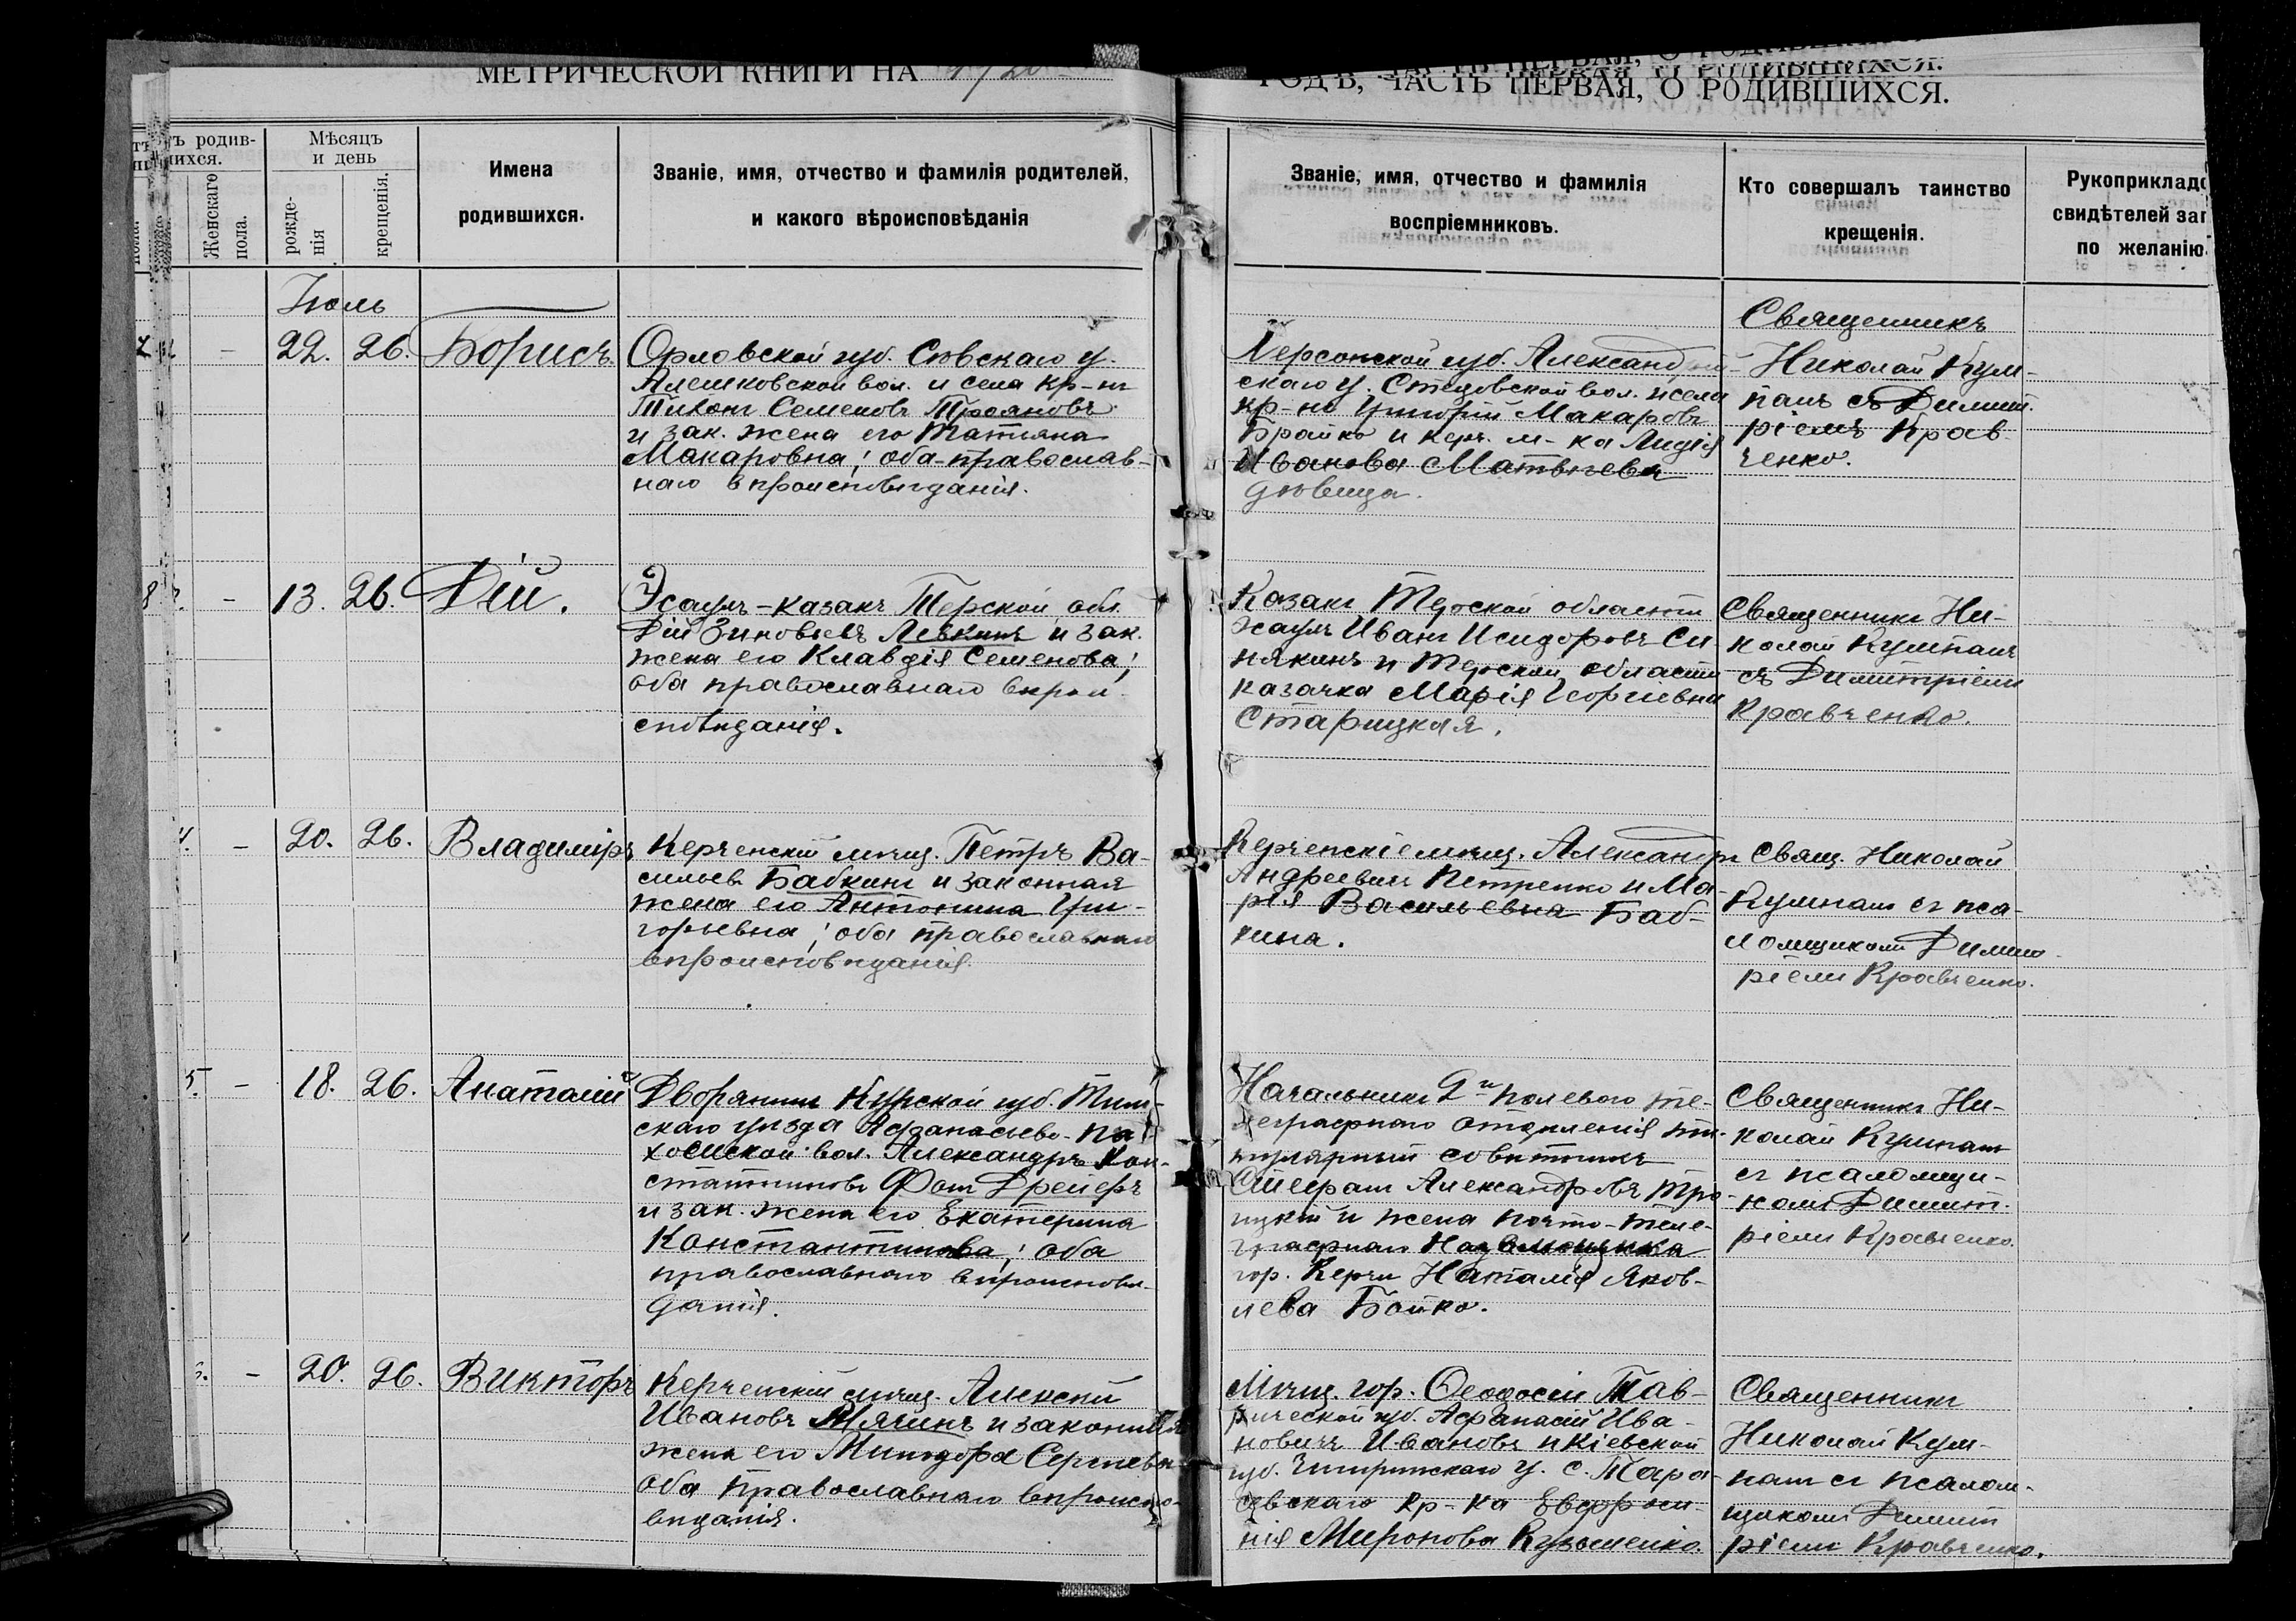 МЕТРИЧЕСКОЙ КНИГИ НА
ГОДЪ, ЧАСТЬ ПЕРВАЯ, О РОДИВШИХСЯ.
ъ родив-
шихся.
Женскаго
пола.
Мѣсяцъ
и день
рожде-
нія
крещенія.
Имена
родившихся.
Званіе, имя, отчество и фамилія родителей,
и какого вѣроисповѣданія
Званіе, имя, отчество и фамилія
воспріемниковъ.
Кто совершалъ таинство
крещенія.
Рукоприкладс
свидѣтелей зап
по желанію
Іюль
- 22. 26. Борисъ.
Орловской губ. Сѣвскаго у.
Алешковской вол. и села кр-нъ
Тихонъ Семеновъ Трояновъ
и зак. жена его Татіана
Макаровна; оба православ-
наго вѣроисповѣданія.
Херсонской губ. Александрій-
скаго у. вол. и села
кр-нъ Григорій Макаровъ
Брайко и керч. м-ка Лидія
Иванова Матвѣева
дѣвица.
Священникъ
Николай Кум-
панъ съ Димит-
ріемъ Крав-
ченко.
- 13. 26. Дій.
Эсаулъ-казакъ Терской обл.
Дій Зиновьевъ Левкинъ и зак.
жена его Клавдія Семенова;
оба православнаго вѣрои-
сповѣданія.
Казакъ Терской области
Иванъ Исидоровъ Си-
някинъ и Терской области
казачка Марія Георгіевна
Старицкая.
Священникъ Ни-
колай Кумпанъ
съ Димитріемъ
Кравченко.
4. - 20. 26. Владиміръ
Керченскій мѣщ. Петръ Ва-
сильевъ Бабкинъ и законная
жена его Антонина Гри-
горьевна; оба православнаго
вѣроисповѣданія.
Керченскіе мѣщ. Александръ
Андреевичъ Петренко и Ма-
рія Васильевна Баб-
кина.
Свящ. Николай
Кумпанъ съ пса-
ломщикомъ Димит-
ріемъ Кравченко.
5. - 18. 26. Анатолій
Дворянинъ Курской губ. Тим-
скаго уѣзда Афанасьево-Па-
хонской вол. Александръ Кон-
стантиновъ Фонъ Дрейеръ
и зак. жена его Екатерина
Константинова; оба
православнаго вѣроисповѣ-
данія.
Начальникъ 2го полевого те-
леграфнаго отдѣленія ти-
тулярный совѣтникъ
Стефанъ Александровъ Тро-
ицкій и жена почто-теле-
графнаго
гор. Керчи Наталія Яков-
лева Бойко.
Священникъ Ни-
колай Кумпанъ
съ псаломщи-
комъ Димит-
ріемъ Кравченко.
- 20. 26. Викторъ
Керченскій мѣщ. Алексѣй
Ивановъ Мячинъ и законная
жена его Минодора Сергіевна
оба православнаго вѣроиспо-
вѣданія.
Мѣщ. гор. Ѳеодосіи Тав-
рической губ. Афанасій Ива-
новичъ Ивановъ и Кіевской
губ. Чигиринскаго у. с. Тара-
севскаго кр-ка Евфроси-
нія Миронова Кузьменко.
Священникъ
Николай Кум-
панъ съ псалом-
щикомъ Димит
ріемъ Кравченко.